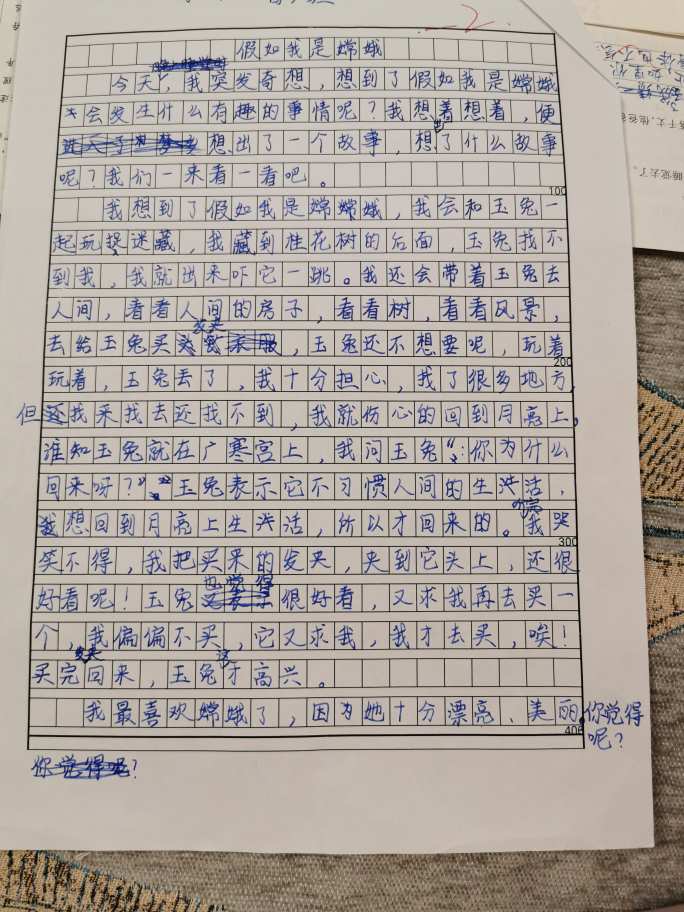 假如我是嫦娥
今天,我突发奇想,想到了假如我是嫦娥
会发生什么有趣的事情呢?我想着想着,便
想出了一个故事,想出了什么故事
呢?我们一来看一看吧。
100
我想到了假如我是嫦嫦娥,我会和玉兔一
起玩捉迷藏,我藏到桂花树的后面,玉兔找不
到我,我就出来吓它一跳。我还会带着玉兔去
人间,看看人间的房子,看看树,看看风景,
去给玉兔买发夹,玉兔还不想要呢,玩着
200
玩着,玉兔丢了,我十分担心,我了很多地方,
但我来找去还找不到,我就伤心的回到月亮上,
谁知玉兔就在广寒宫上,我问玉兔“:你为什么
回来呀?”玉兔表示它不习惯人间的生活,
想回到月亮上生活,所以才回来的。我哭
300
笑不得,我把买来的发夹,夹到它头上,还很
好看呢!玉兔也觉得很好看,又求我再去买一
个,我偏偏不买,它又求我,我才去买,唉!
买完发夹回来,玉兔这才高兴。
我最喜欢嫦娥了,因为她十分漂亮、美丽,你觉得
呢?
400